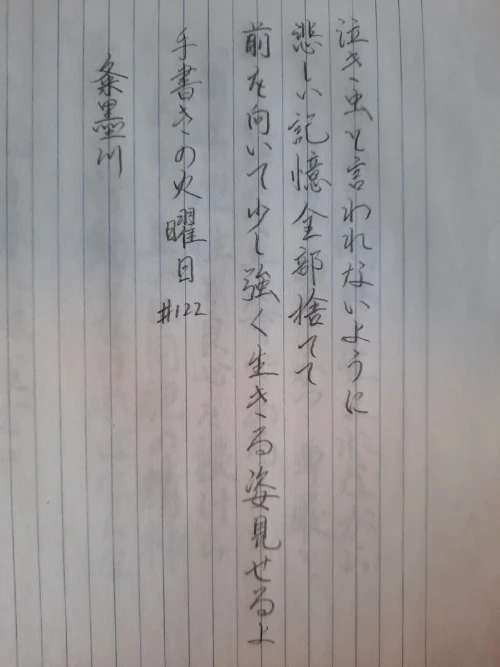 泣き虫と言われないように
悲しい記憶全部捨てて
前を向いて少し強く生きる姿見せるよ
手書きの火曜日 #122
粂墨川